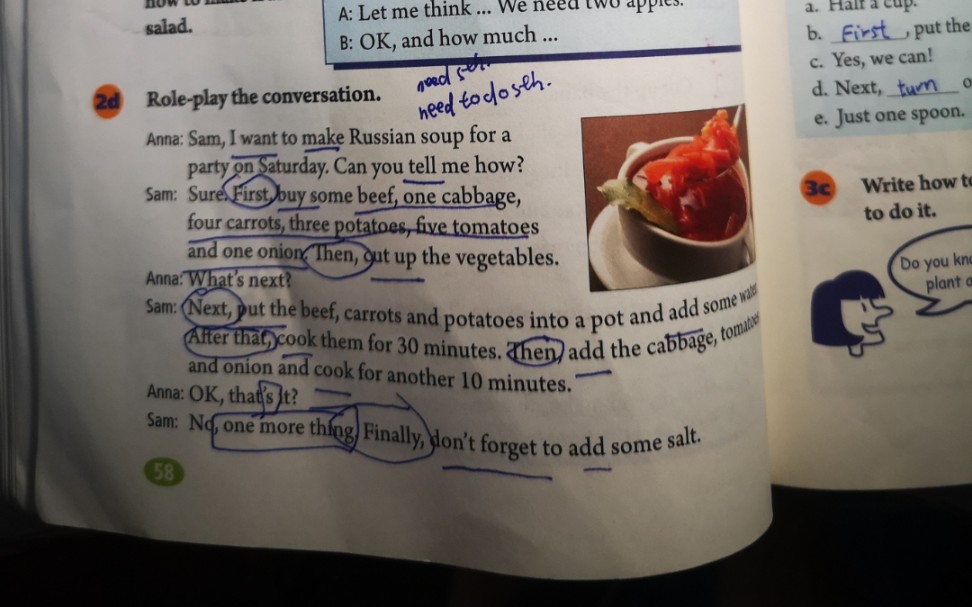 salad.
A: Let me think ... We need two apples.
B: OK, and how much ...
need sth.
need to do sth.
2d Role-play the conversation.
Anna: Sam, I want to make Russian soup for a
party on Saturday. Can you tell me how?
Sam: Sure. First, buy some beef, one cabbage,
four carrots, three potatoes, five tomatoes
and one onion. Then, cut up the vegetables.
Anna: What's next?
Sam: Next, put the beef, carrots and potatoes into a pot and add some water.
After that, cook them for 30 minutes. Then, add the cabbage, tomatoes
and onion and cook for another 10 minutes.
Anna: OK, that's it?
Sam: No, one more thing. Finally, don't forget to add some salt.
58
a. Half a cup.
b. First, put the
c. Yes, we can!
d. Next, turn o
e. Just one spoon.
3c Write how to
to do it.
Do you kno
plant a